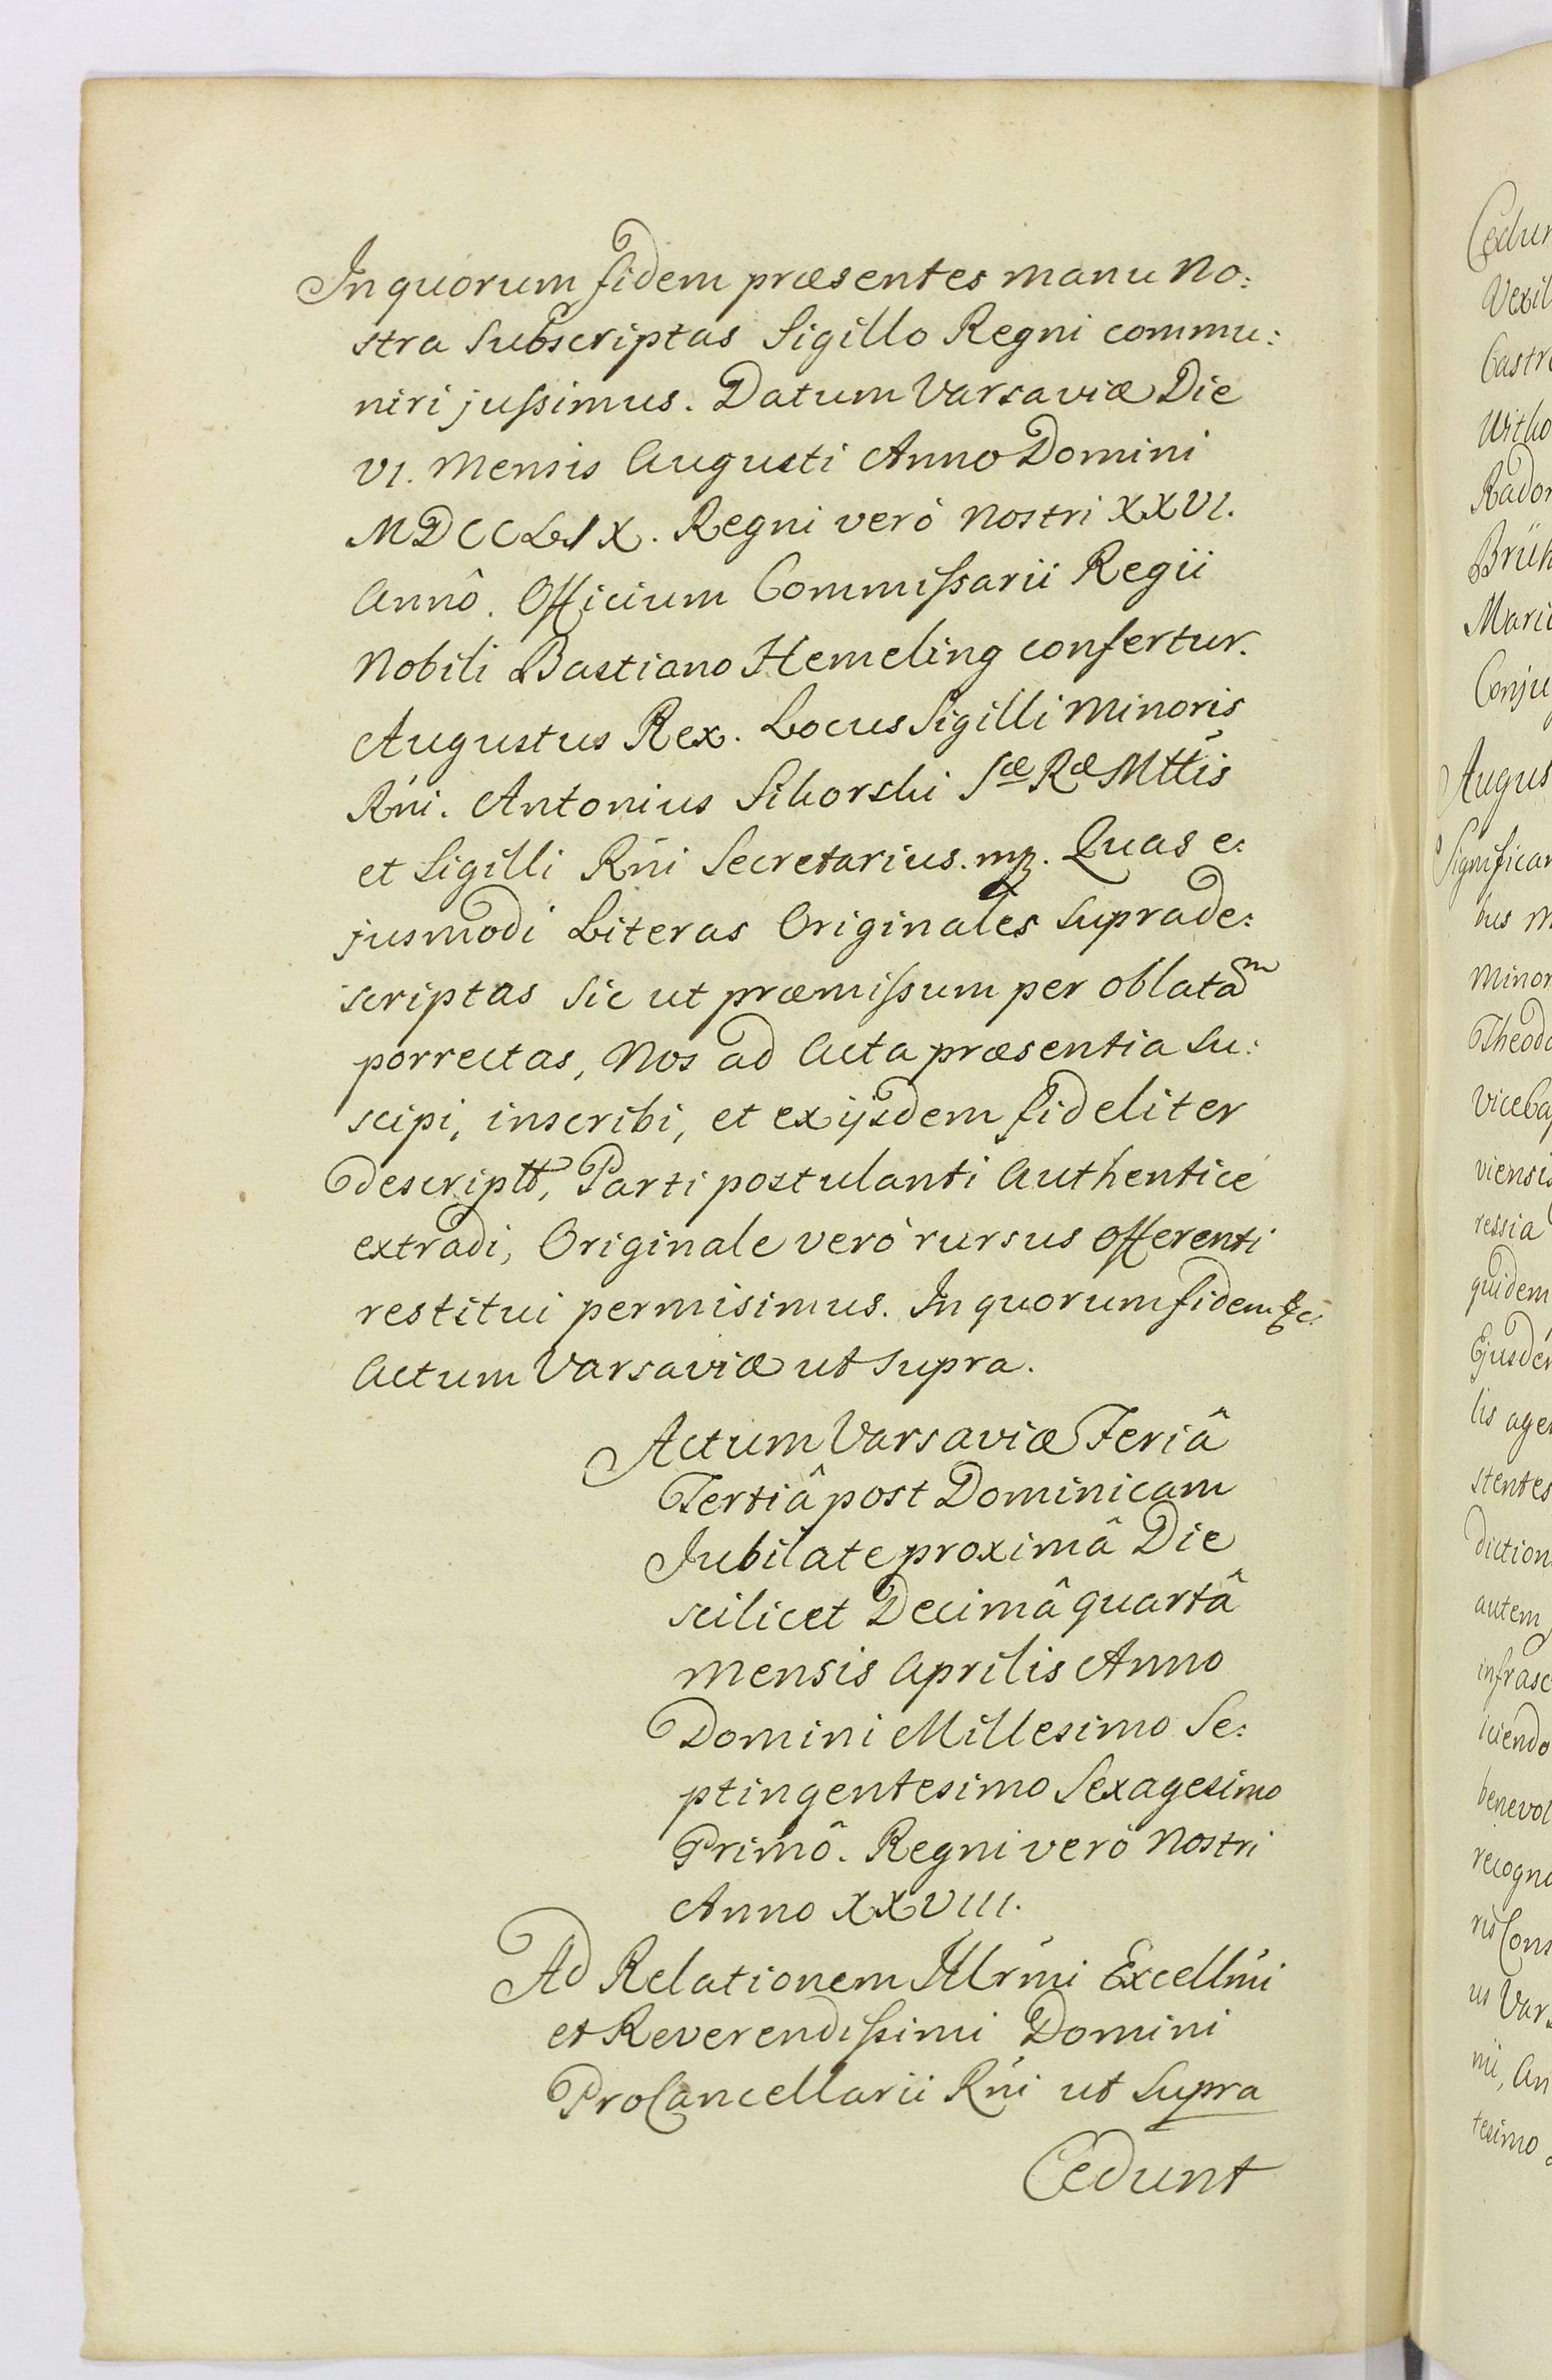 In quorum fidem præsentes manu No:
stra Subscriptas Sigillo Regni commu:
niri jussimus. Datum Varsaviæ Die
VI. Mensis Augusti Anno Domini
MDCCLIX. Regni verò Nostri XXVI.
Annô. Officium Commissarii Regii
Nobili Bastiano Hemeling confertur.
Augustus Rex. Locus Sigilli Minoris
Rńi. Antonius Sikorski Sæ Ræ Mttis
et Sigilli Rńi Secretarius. mp. Quas e:
jusmodi Literas Originales Suprade:
scriptas Sic ut præmissum per oblatam
porrectas, Nos ad Acta præsentia Su:
scipi, inscribi, et ex ijsdem fideliter
descriptt, Parti postulanti Authenticè
extradi, Originale verò rursus offerenti
restitui permisimus. In quorum fidem &c.
Actum Varsaviæ ut supra.
Actum Varsaviæ Feriâ
Tertiâ post Dominicam
Jubilate proximâ Die
scilicet Decimâ quartâ
Mensis Aprilis Anno
Domini Millesimo Se:
ptingentesimo Sexagesimo
Primô. Regni verò Nostri
Anno XXVIII.
Ad Relationem Illrmi Excellmi
et Reverendissimi Domini
ProCancellarii Rńi ut Supra
Cedunt
Vexil
Castr
Witho
Rado
Brüh
Conju
Augus
Significa
bus
minor
viensis
ressia
quidem
lis age
stentes
diction
autem
infrasc
benevol
us Var
tesimo